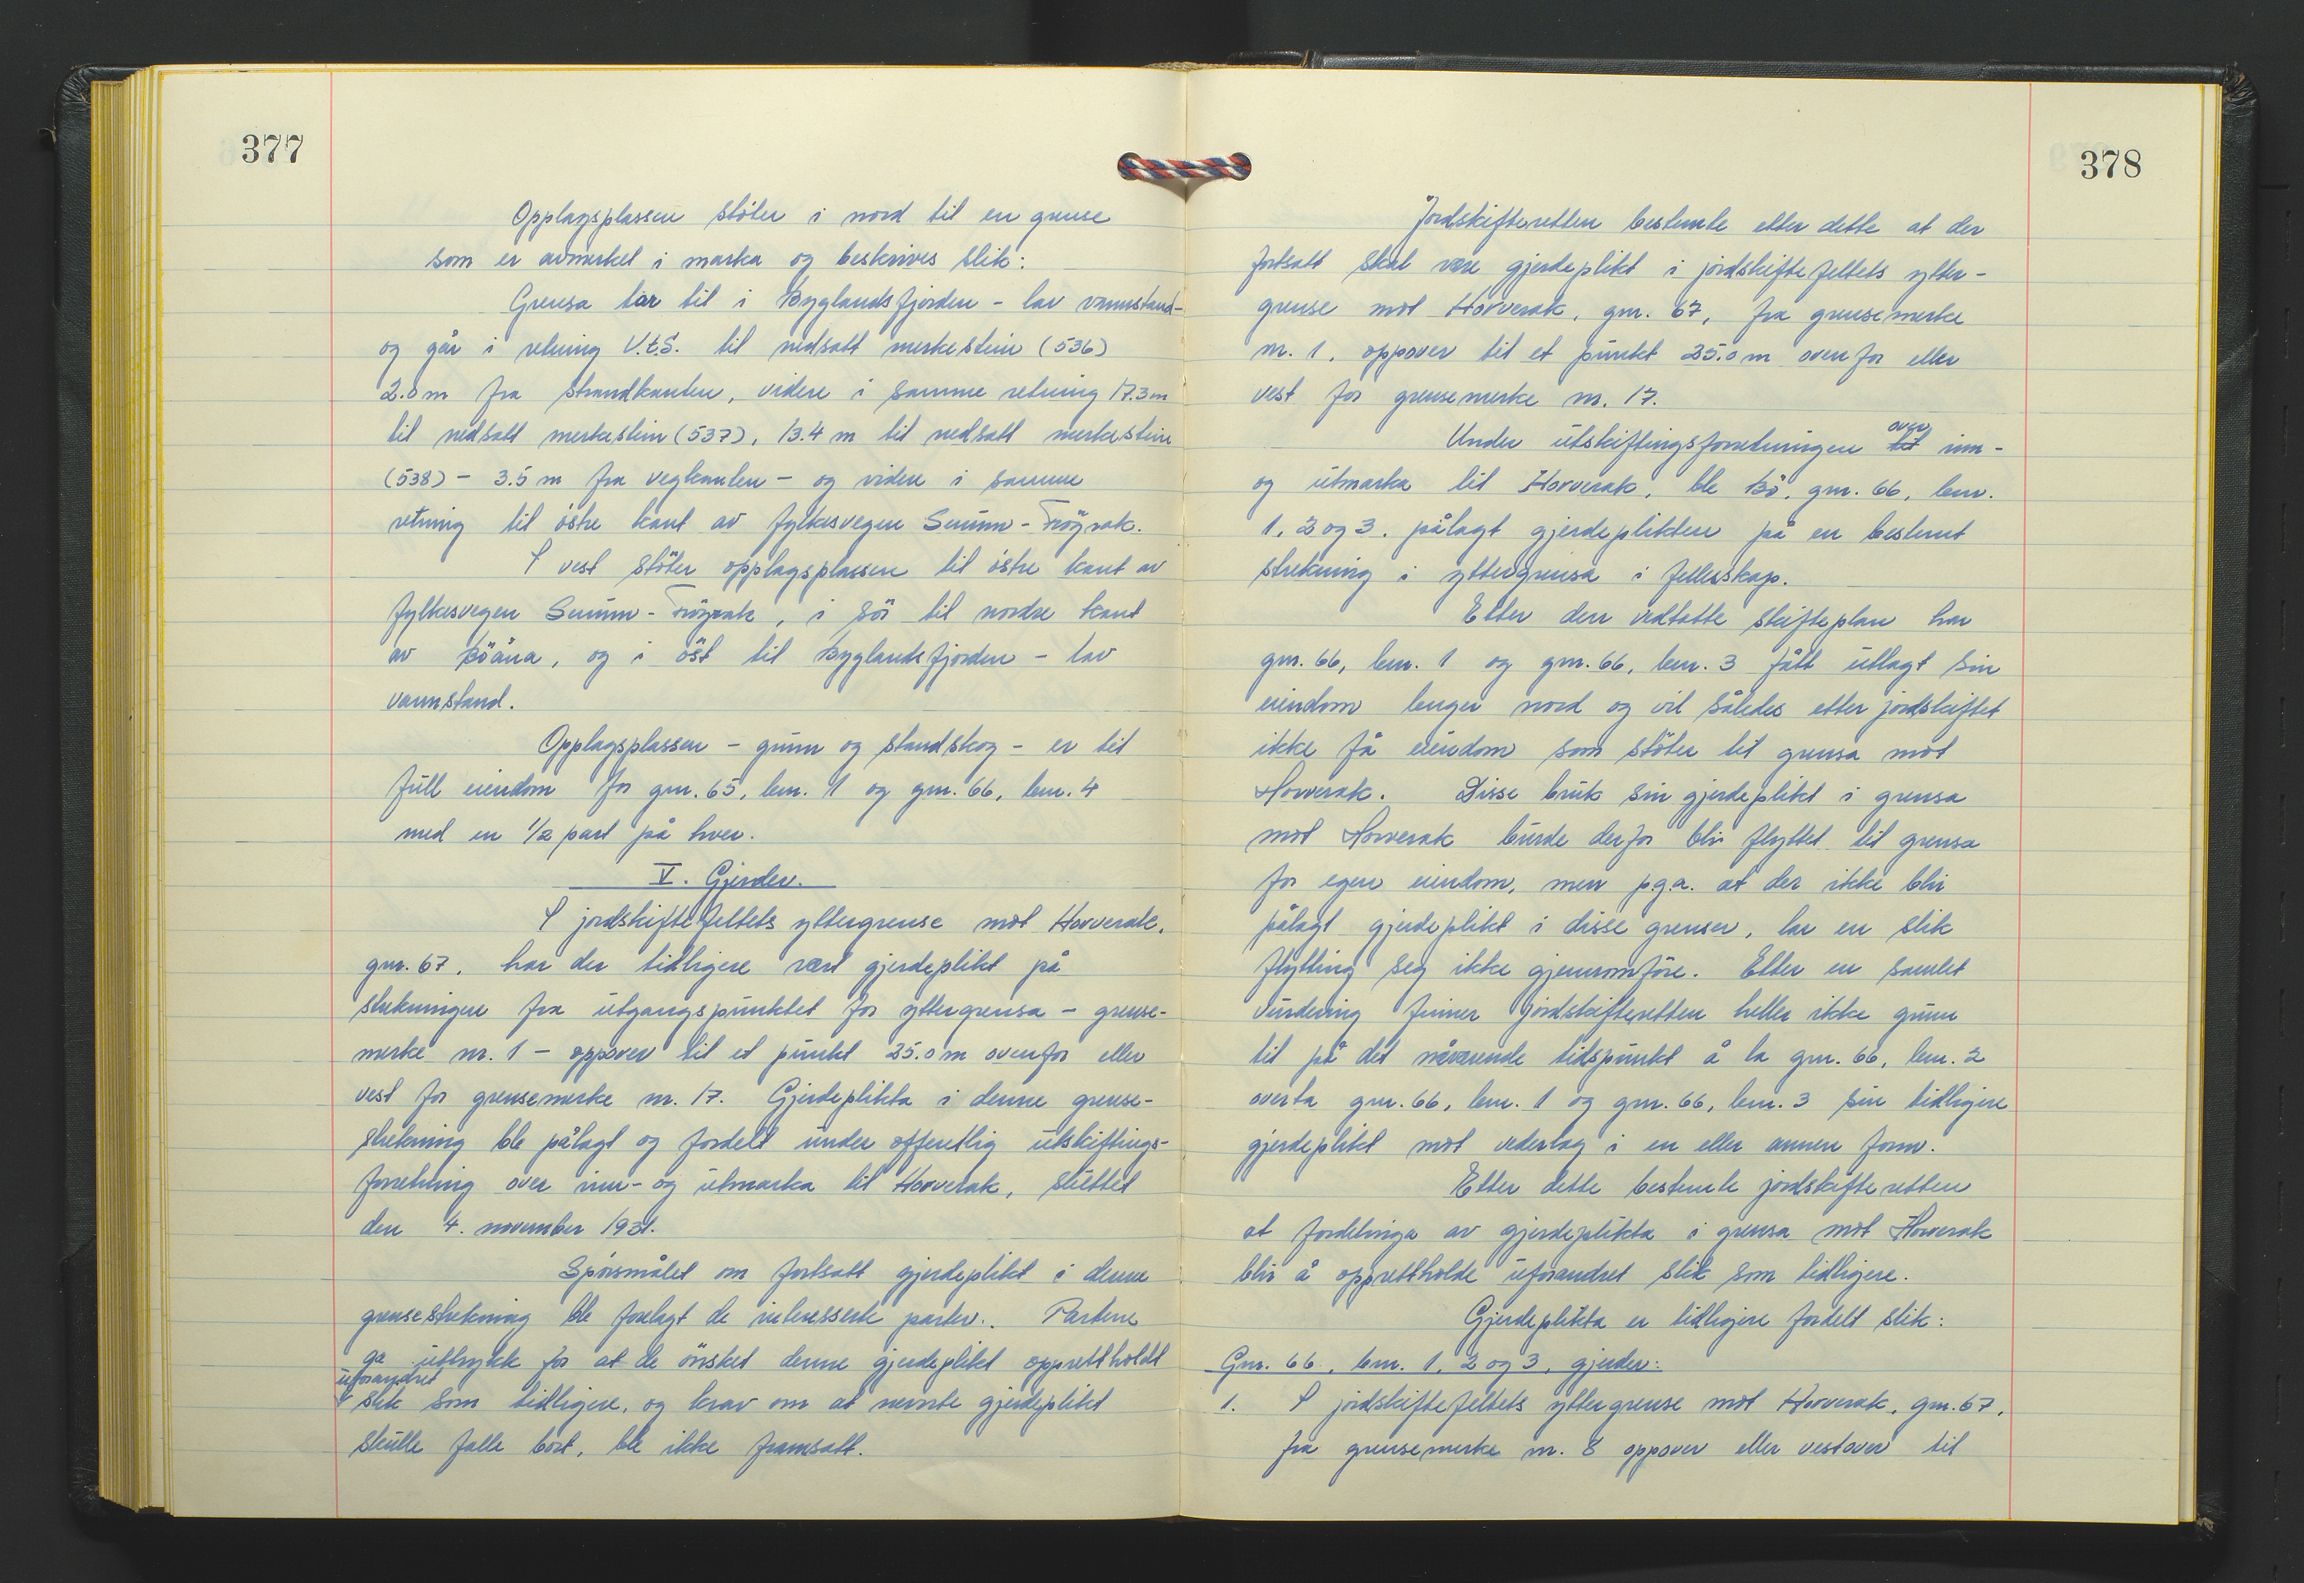 377
Opplagsplassen støter i nord til en grense
som er avmerket i marka og beskrives slik:
Grensa tar til i Byglandsfjorden - lav vannstand -
og går i retning V.t.S. til nedsatt merkestein (536)
2.0 m fra strandkanten, videre i samme retning 17.3 m
til nedsatt merkestein (537), 13.4 m til nedsatt merkestein
(538) - 3.5 m fra vegkanten - og videre i samme
retning til östre kant av fylkesvegen Senum - Fröyrak.
I vest stöter opplagsplassen til östre kant av
fylkesvegen Senum - Fröyrak, i sör til nordre kant
av Böåna, og i öst til Byglandsfjorden - lav
vannstand.
Opplagsplassen - grunn og standskog - er til
full eiendom for gnr. 65, bnr. 1 og gnr. 66, bnr. 4
med en 1/2 part på hver.
V. Gjerder.
I jordskiftefeltets yttergrense mot Hovverak,
gnr. 67, har der tidligere vært gjerdeplikt på
strekningen fra utgangspunktet for yttergrensa - grense-
merke nr. 1 - oppover til et punkt 25.0 m ovenfor eller
vest for grensemerke nr. 17. Gjerdeplikta i denne grense-
strekning ble pålagt og fordelt under offentlig utskiftings-
forretning over inn- og utmarka til Hovverak, sluttet
den 4. november 1931.
Spörsmålet om fortsatt gjerdeplikt i denne
grensestrekning ble forelagt de interesserte parter.. Partene
ga uttrykk for at de önsket denne gjerdeplikt opprettholdt
uforandret
slik som tidligere, og krav om at nevnte gjerdeplikt
skulle falle bort, ble ikke framsatt.
378
Jordskifteretten bestemte etter dette at der
fortsatt skal være gjerdeplikt i jordskiftefeltets ytter-
grense mot Hovverak, gnr. 67, fra grensemerke
nr. 1, oppover til et punkt 25.0 m ovenfor eller
vest for grensemerke nr. 17.
Under utskiftingsforretningen til over inn-
og utmarka til Hovverak, ble Bö, gnr. 66, bnr.
1, 2 og 3, pålagt gjerdeplikten på en bestemt
strekning i yttergrensa i fellesskap.
Etter den vedtatte skifteplan har
gnr. 66, bnr. 1 og gnr. 66, bnr. 3 fått utlagt sin
eiendom lenger nord og vil således etter jordskiftet
ikke få eiendom som stöter til grensa mot
Hovverak. Disse bruk sin gjerdeplikt i grensa
mot Hovverak burde derfor bli flyttet til grensa
for egen eiendom, men p.g.a. at der ikke blir
pålagt gjerdeplikt i disse grenser, lar en slik
flytting seg ikke gjennomföre. Etter en samlet
vurdering finner jordskifteretten heller ikke grunn
til på det nåværende tidspunkt å la gnr. 66, bnr. 2
overta gnr. 66, bnr. 1 og gnr. 66, bnr. 3 sin tidligere
gjerdeplikt mot vederlag i en eller annen form.
Etter dette bestemte jordskifteretten
at fordelinga av gjerdeplikta i grensa mot Hovverak
blir å opprettholde uforandret slik som tidligere.
Gjerdeplikta er tidligere fordelt slik:
Gnr. 66, bnr. 1, 2 og 3, gjerder:
1. I jordskiftefeltets yttergrense mot Hovverak, gnr. 67,
fra grensemerke nr. 8 oppover eller vestover til